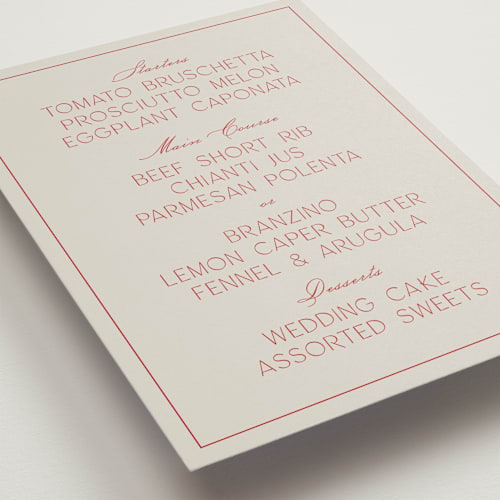 Starters
TOMATO BRUSCHETTA
PROSCIUTTO MELON
EGGPLANT CAPONATA
Main Course
BEEF SHORT RIB
CHIANTI JUS
PARMESAN POLENTA
or
BRANZINO
LEMON CAPER BUTTER
FENNEL & ARUGULA
Desserts
WEDDING CAKE
ASSORTED SWEETS